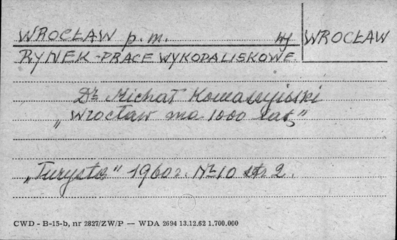 WROCŁAW p.m. WROCŁAW
RYNEK - PRACE WYKOPALISKOWE.
Dr Michał
„Wrocław ma 1000 lat”
„Turysta” 1960 r. Nr 10 str. 2.
CWD - B-15-b, nr 2827/ZW/P — WDA 2694 13.12.62 1.700.000